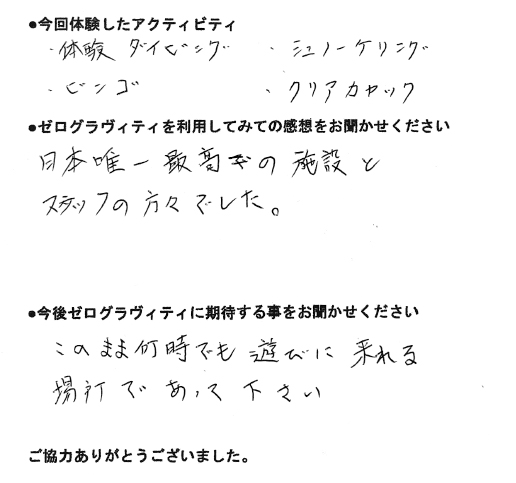 ●今回体験したアクティビティ
・体験ダイビング ・シュノーケリング
・ビンゴ ・クリアカヤック
●ゼログラヴィティを利用してみての感想をお聞かせください
日本唯一最高での施設と
スタッフの方々でした。
●今後ゼログラヴィティに期待する事をお聞かせください
このまま何時でも遊びに来れる
場所であって下さい
ご協力ありがとうございました。